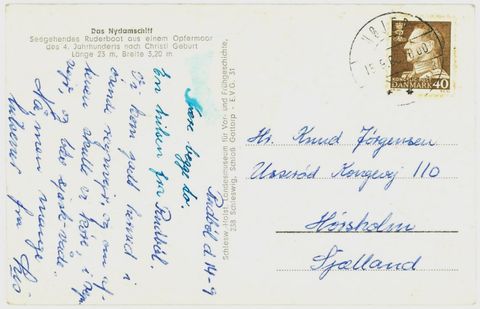 Das Nydamschiff
Seegehendes Ruderboot aus einem Opfermoor
des 4. Jahrhunderts nach Christi Geburt
Länge 23 m, Breite 3,20 m
Schlesw.-Holst. Landesmuseum für Vor- und Frühgeschichte,
238 Schleswig, Schloß Gottorp · E.V.G. 31
DANMARK 40
Rudbøl d 14-9
Kære begge to.
En hilsen fra Rudbøl.
Vi kom godt herned i
regnvejr, og om
skulle vi
og blev
Nå, men mange
fra
Hr. Knud Jørgensen
Usserød Kongevej 110
Hørsholm
Sjælland